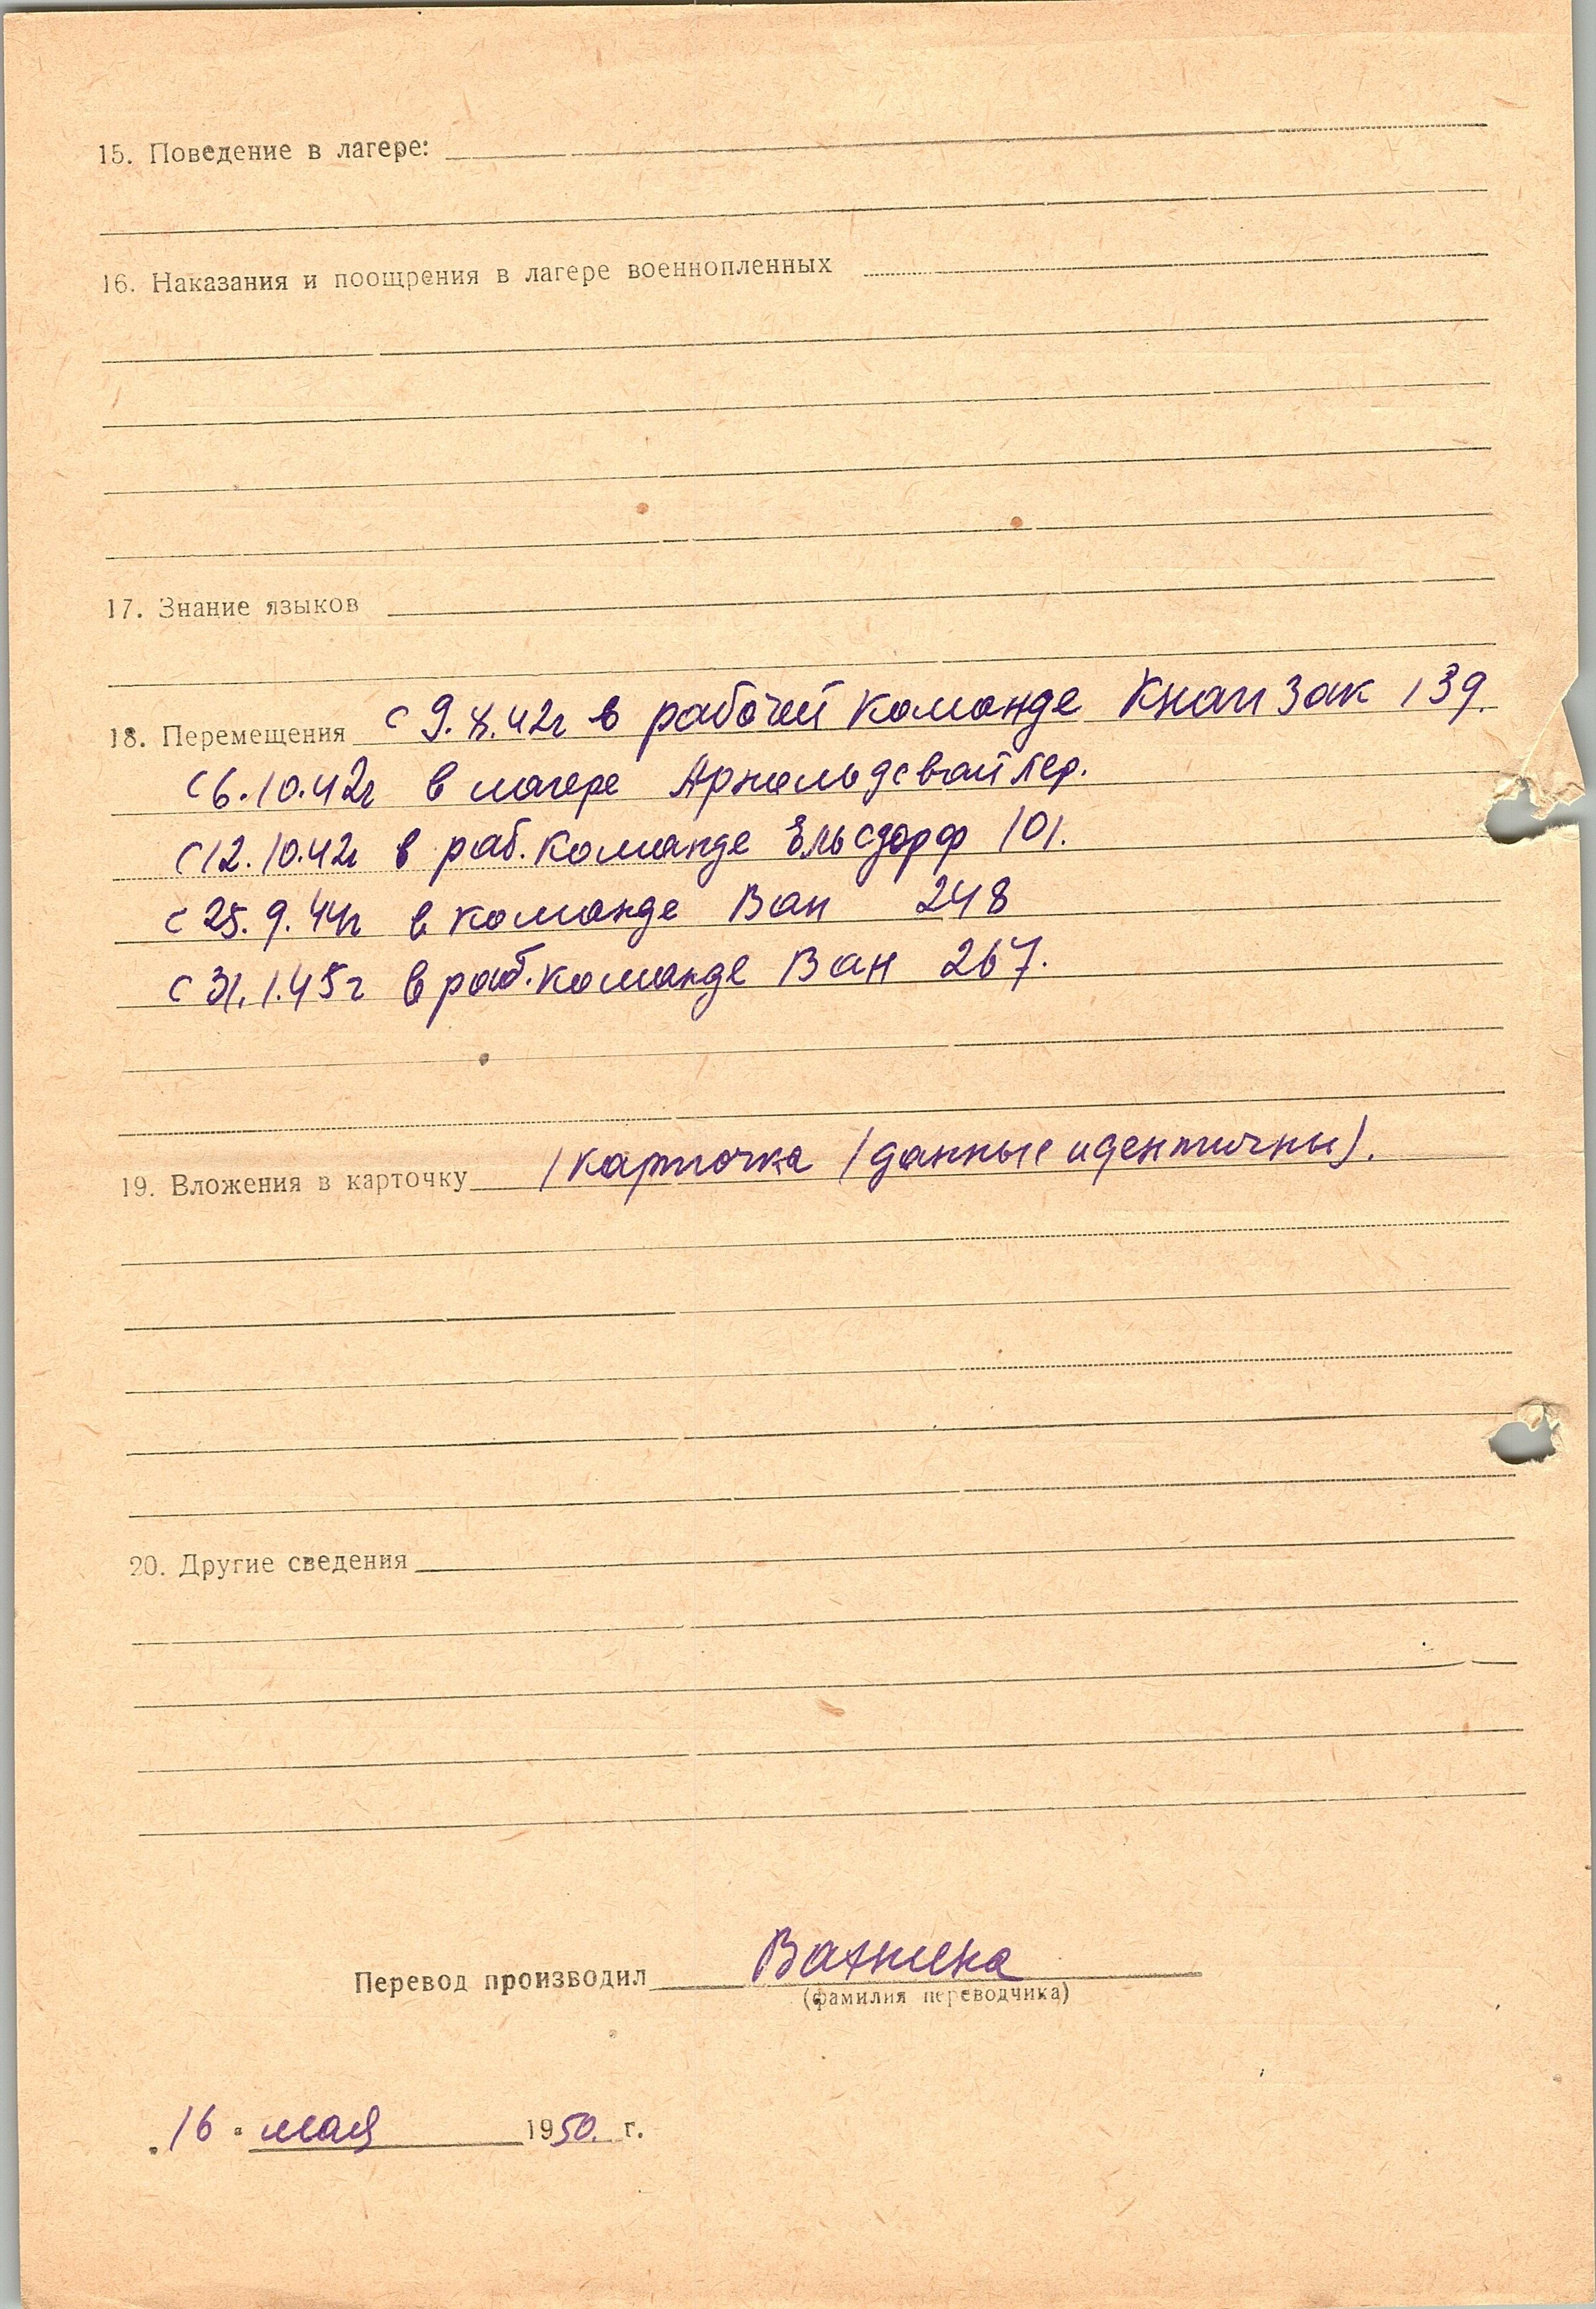 15. Поведение в лагере:
16. Наказания и поощрения в лагере военнопленных
17. Знание языков
18. Перемещения с 9.8.42г в рабочей команде Кнапзак 139.
с 6.10.42г в лагере Арнольдсвайлер.
с 12.10.42г в раб. команде Ельсдорф 101.
с 25.9.44г в команде Ван 248
с 31.1.45г в раб. команде Ван 267.
19. Вложения в карточку 1 карточка (данные идентичны).
20. Другие сведения
Перевод производил
(фамилия переводчика)
"16" мая 1950. г.